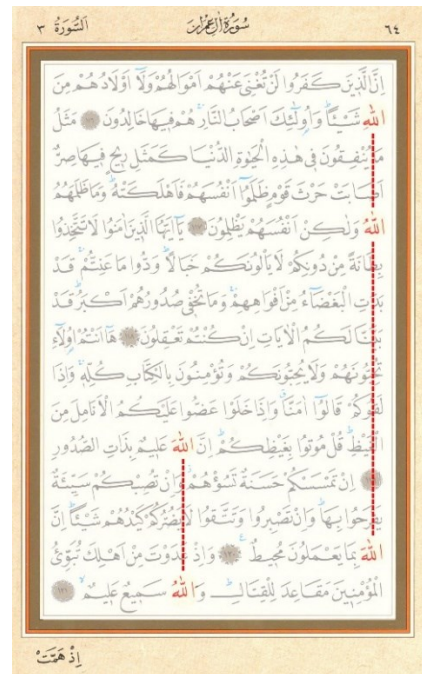 ٦٤ سُورَةُ اٰلِ عِمْرٰنَ اَلسُّورَةُ ٣
اِنَّ الَّذ۪ينَ كَفَرُوا لَنْ تُغْنِيَ عَنْهُمْ اَمْوَالُهُمْ وَلَٓا اَوْلَادُهُمْ مِنَ
اللّٰهِ شَيْـًٔا وَاُو۬لٰٓئِكَ اَصْحَابُ النَّارِ هُمْ ف۪يهَا خَالِدُونَ ﴿١١٦﴾ مَثَلُ
مَا يُنْفِقُونَ ف۪ي هٰذِهِ الْحَيٰوةِ الدُّنْيَا كَمَثَلِ ر۪يحٍ ف۪يهَا صِرٌّ
اَصَابَتْ حَرْثَ قَوْمٍ ظَلَمُٓوا اَنْفُسَهُمْ فَاَهْلَكَتْهُ وَمَا ظَلَمَهُمُ
اللّٰهُ وَلٰكِنْ اَنْفُسَهُمْ يَظْلِمُونَ ﴿١١٧﴾ يَٓا اَيُّهَا الَّذ۪ينَ اٰمَنُوا لَا تَتَّخِذُوا
بِطَانَةً مِنْ دُونِكُمْ لَا يَأْلُونَكُمْ خَبَالًا وَدُّوا مَا عَنِتُّمْ قَدْ
بَدَتِ الْبَغْضَٓاءُ مِنْ اَفْوَاهِهِمْ وَمَا تُخْف۪ي صُدُورُهُمْ اَكْبَرُ قَدْ
بَيَّنَّا لَكُمُ الْاٰيَاتِ اِنْ كُنْتُمْ تَعْقِلُونَ ﴿١١٨﴾ هَٓا اَنْتُمْ اُو۬لَٓاءِ
تُحِبُّونَهُمْ وَلَا يُحِبُّونَكُمْ وَتُؤْمِنُونَ بِالْكِتَابِ كُلِّه۪ وَاِذَا
لَقُوكُمْ قَالُٓوا اٰمَنَّا وَاِذَا خَلَوْا عَضُّوا عَلَيْكُمُ الْاَنَامِلَ مِنَ
الْغَيْظِ قُلْ مُوتُوا بِغَيْظِكُمْ اِنَّ اللّٰهَ عَل۪يمٌ بِذَاتِ الصُّدُورِ
﴿١١٩﴾ اِنْ تَمْسَسْكُمْ حَسَنَةٌ تَسُؤْهُمْ وَاِنْ تُصِبْكُمْ سَيِّئَةٌ
يَفْرَحُوا بِهَا وَاِنْ تَصْبِرُوا وَتَتَّقُوا لَا يَضُرُّكُمْ كَيْدُهُمْ شَيْـًٔا اِنَّ
اللّٰهَ بِمَا يَعْمَلُونَ مُح۪يطٌ ﴿١٢٠﴾ وَاِذْ غَدَوْتَ مِنْ اَهْلِكَ تُبَوِّئُ
الْمُؤْمِن۪ينَ مَقَاعِدَ لِلْقِتَالِ وَاللّٰهُ سَم۪يعٌ عَل۪يمٌ ﴿١٢١﴾
اِذْ هَمَّتْ